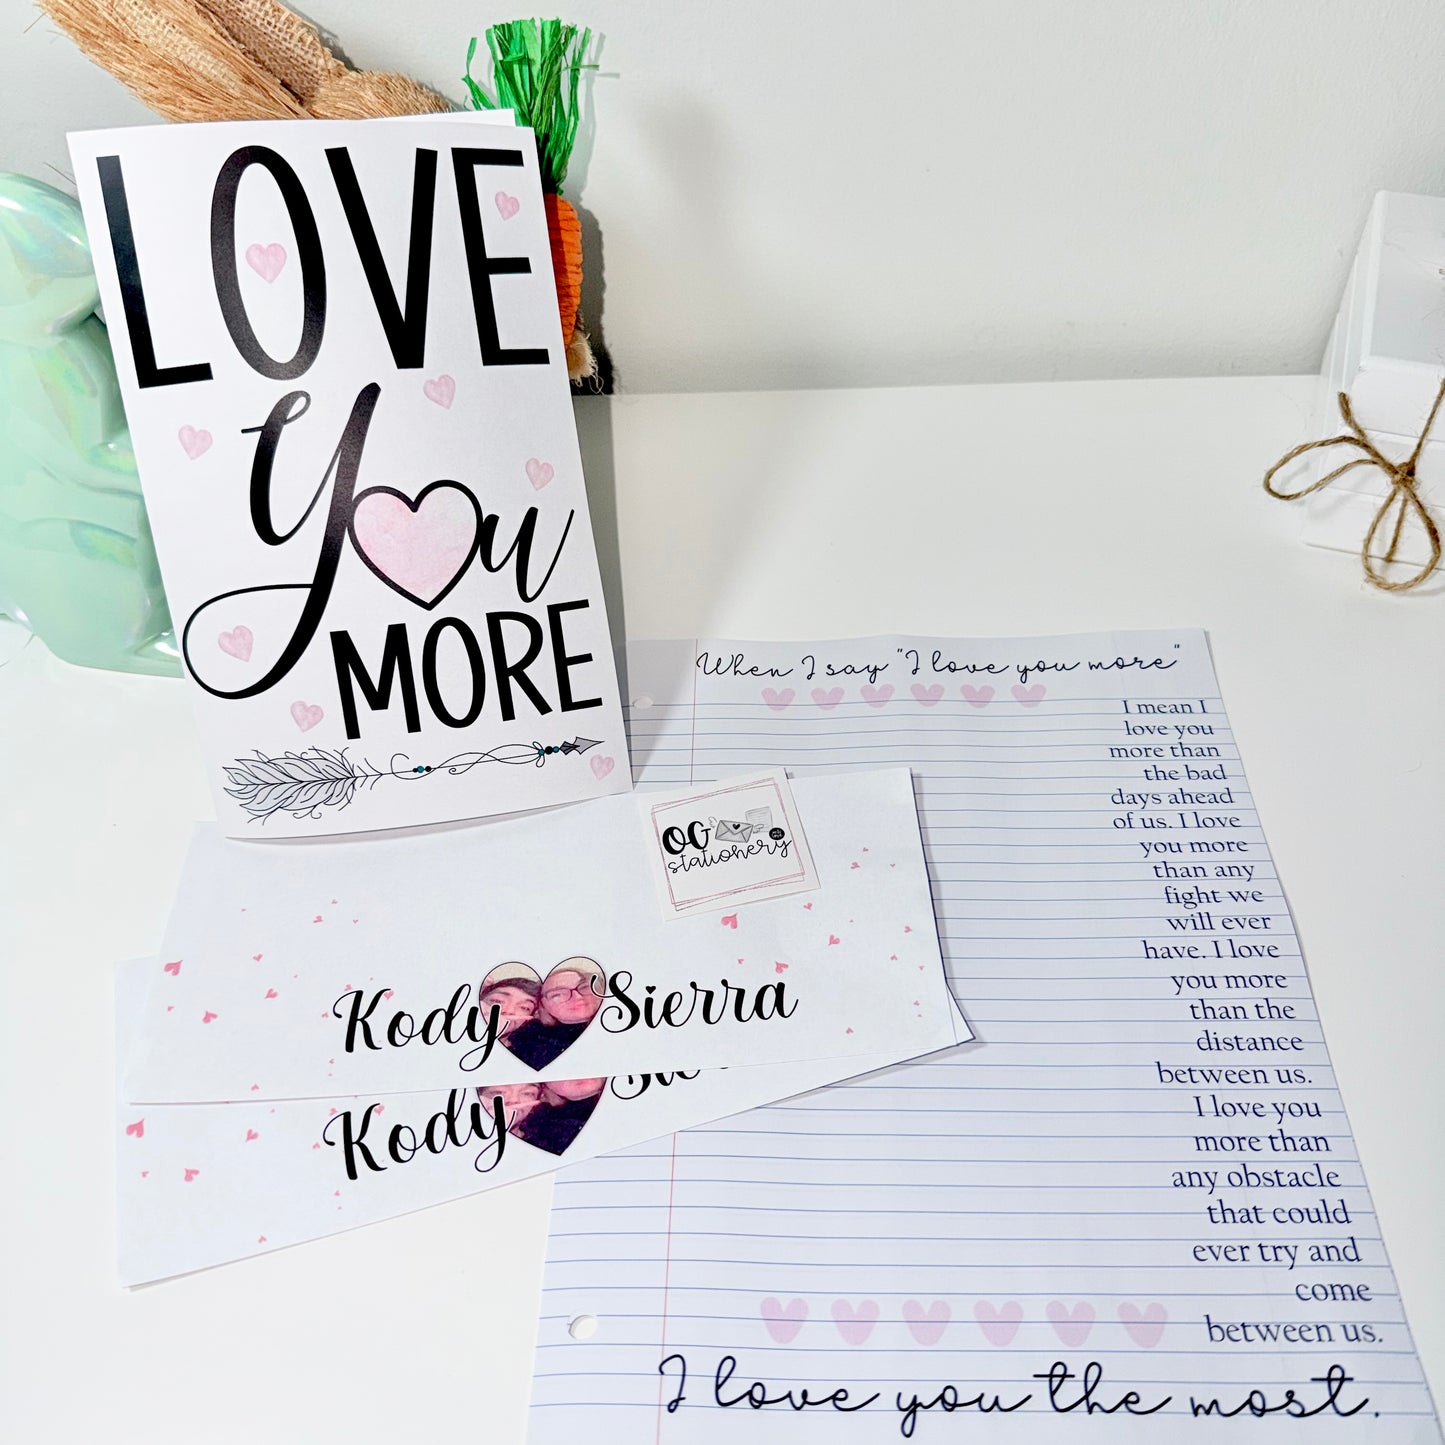 LOVE
You
MORE
When I say "I love you more"
I mean I
love you
more than
the bad
days ahead
of us. I love
you more
than any
fight we
will ever
have. I love
you more
than the
distance
between us.
I love you
more than
any obstacle
that could
ever try and
come
between us.
I love you the most.
OG
stationery
Kody Sierra
Kody